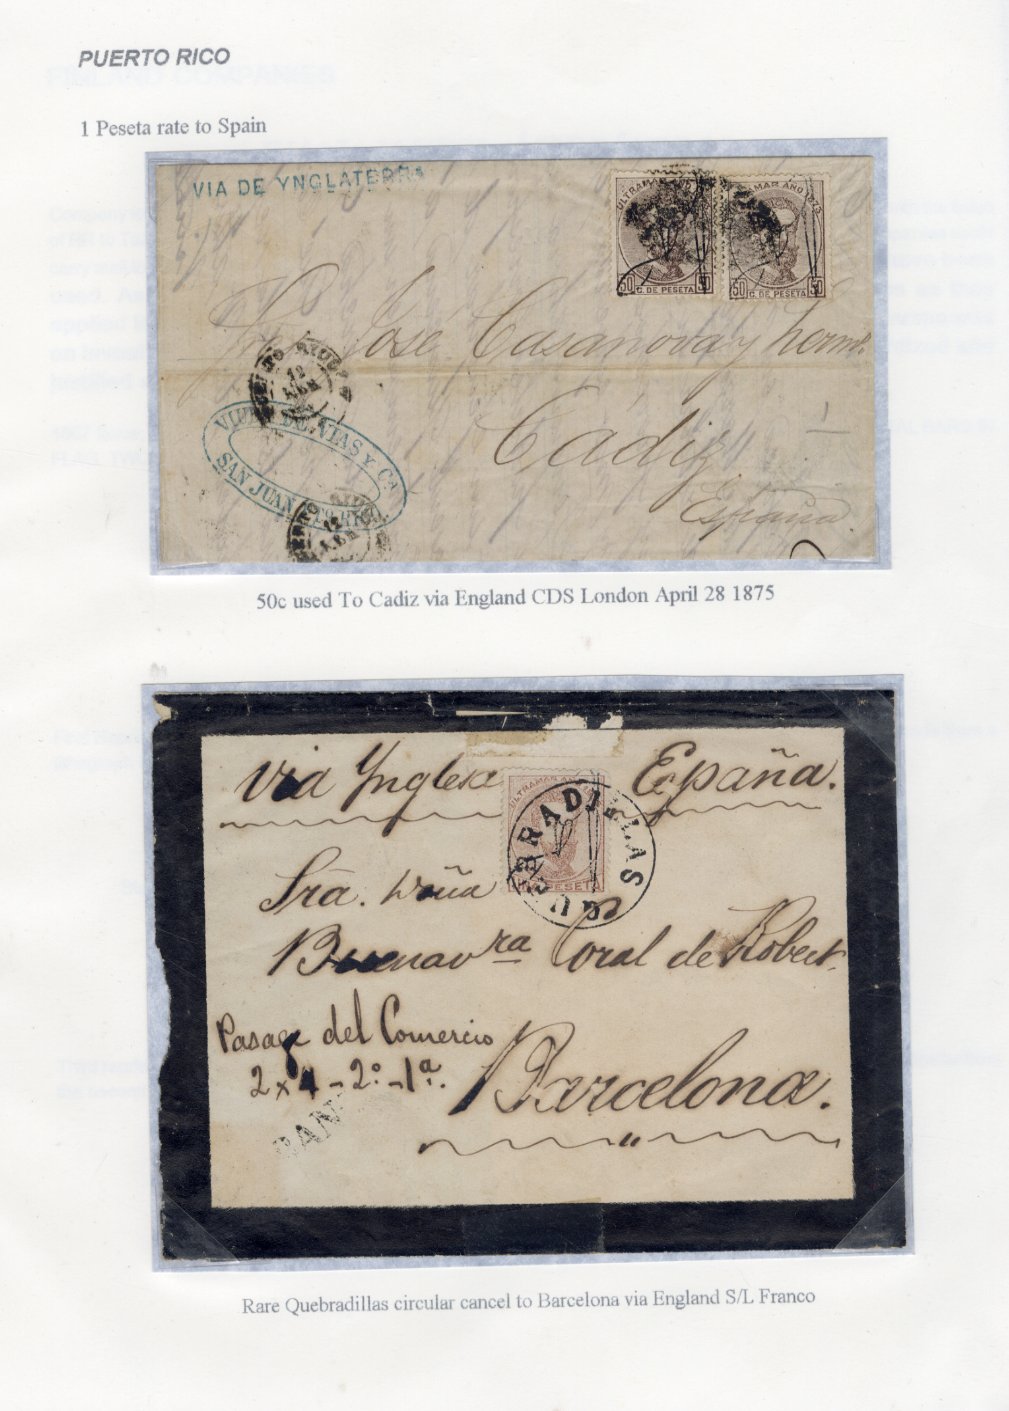 PUERTO RICO
1 Peseta rate to Spain
VIA DE YNGLATERRA
ULTRAMAR AÑO
ULTRAMAR AÑO 1873
50 C. DE PESETA 50
50 C. DE PESETA 50
José Casanova y herm.
Cádiz
España.
PUERTO RICO
12
ABR
VIUDA DE VIAS Y Ca
SAN JUAN PTO RICO
12
ABR
50c used To Cadiz via England CDS London April 28 1875
Via Ynglesa España.
ULTRAMAR AÑO
PESETA
QUEBRADILLAS
Sra. Doña
Buenavra Coral de Robert.
Pasage del Comercio
2 x 4 - 2º - 1ª.
Barcelona.
Rare Quebradillas circular cancel to Barcelona via England S/L Franco